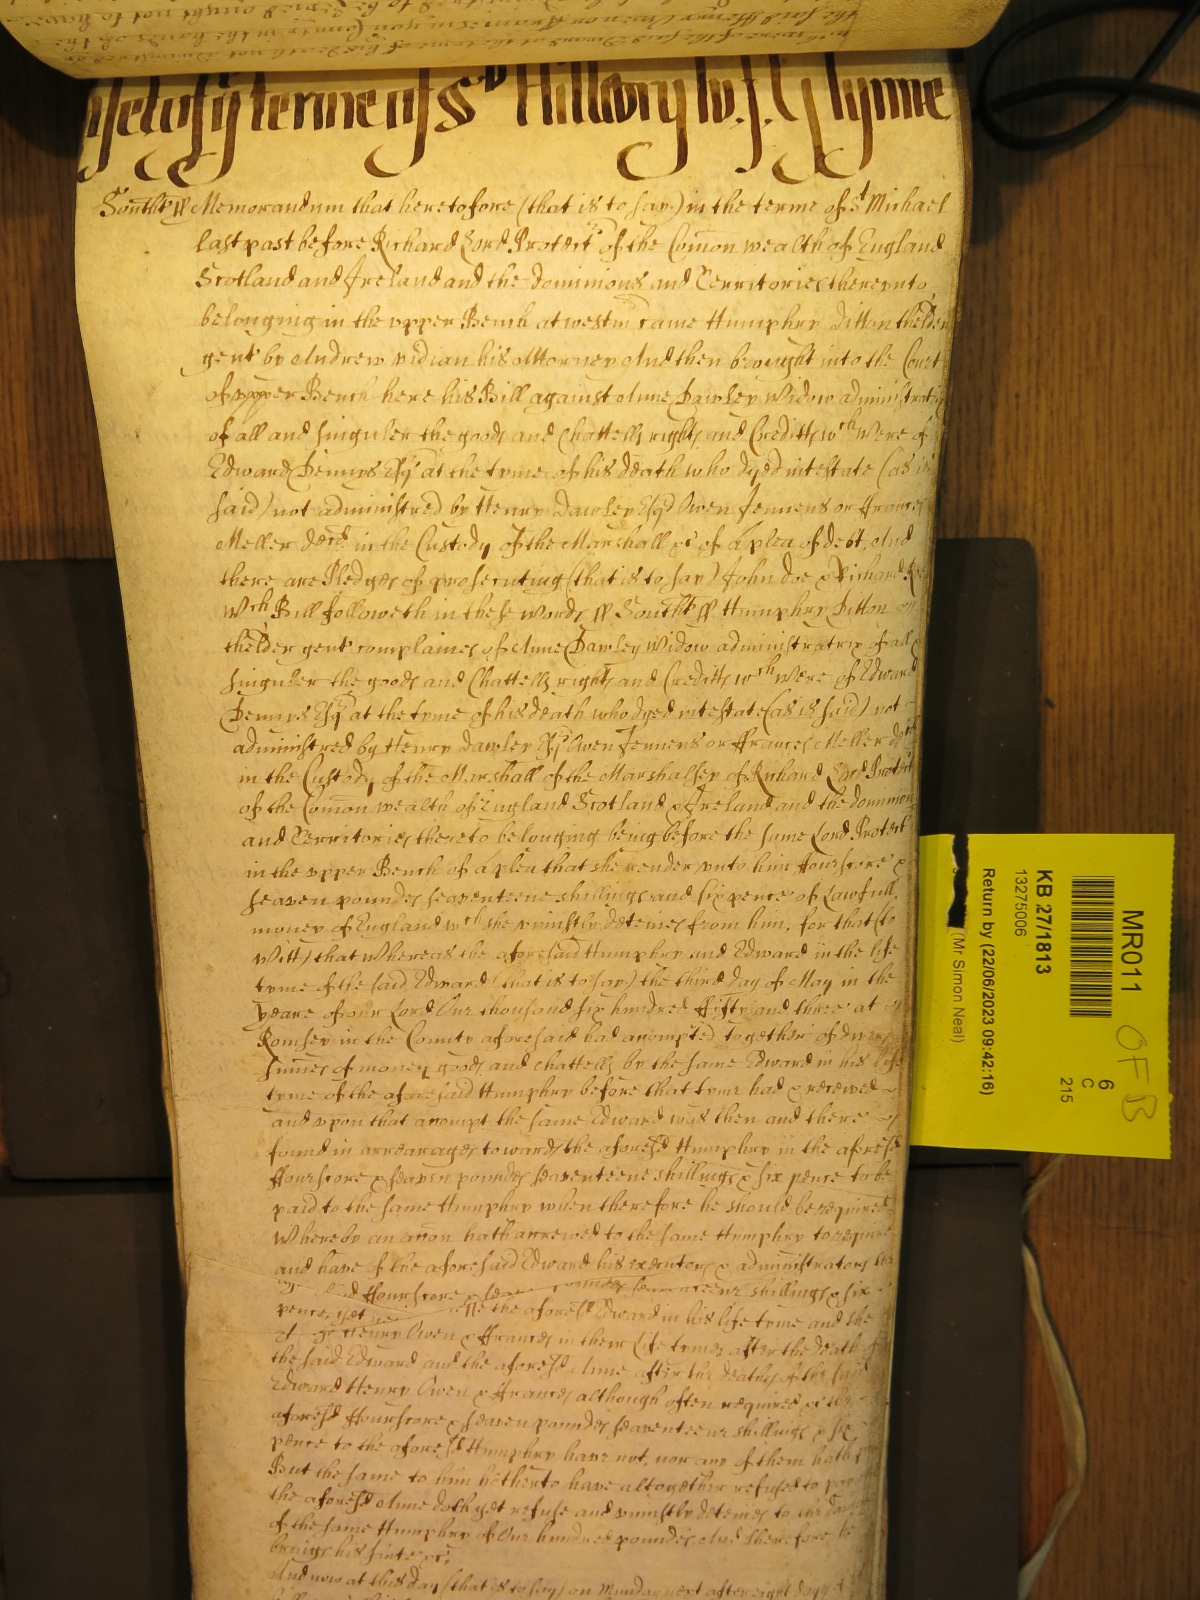 yet of ye terme of St Hillary w. J. Glynne
Southt ss Memorandum that heretofore (that is to say) in the terme of St Michael
last past before Richard Lord Protectr of the Comon wealth of England
Scotland and Ireland and the dominions and Territories thereunto
belonging in the upper Bench at westm came Humphry Ditton thelder
gent by Andrew vidian his Attorney And then brought into the Court
of upper Bench here his Bill against Anne Dawley Widow administratrix
of all and singuler the goods and Chattells rights and Creditts wch were of
Edward Dennys Esqr at the tyme of his death who dyed intestate (as is
said) not administred by Henry Dawley Esqr Owen Jennens or Frances
Meller decd in the Custody of the Marshall &c of a plea of debt, And
there are Pledges of prosecuting (that is to say) John Doe & Richard Roe
Wch Bill followeth in these words ss Southt ss Humphry Ditton
thelder gent complaines of Anne Dawley Widow administratrix of all &
singuler the goods and Chattells rights and Creditts wch were of Edward
Dennys Esqr at the tyme of his death who dyed intestate (as is said) not
administred by Henry Dawley Esqr Owen Jennens or Frances Meller decd
in the Custody of the Marshall of the Marshalsey of Richard Lord Protectr
of the Comon wealth of England Scotland & Ireland and the dominions
and Territories thereto belonging being before the same Lord Protectr
in the upper Bench of a plea that she render unto him Fourscore &
seaven poundes seaventeene shillings and six pence of Lawfull
money of England wch she uniustly deteines from him. for that (to
Witt) that Whereas the aforesaid Humphry and Edward in the life
tyme of the said Edward (that is to say) the third day of May in the
yeare of our Lord One thousand six hundred fifty and three at
Romsey in the County aforesaid had accompted together of divers
summes of money goods and chattells by the same Edward in his life
tyme of the aforesaid Humphry before that tyme had & received
and upon that accompt the same Edward was then and there
found in arrearages towards the aforesd Humphry in the aforesd
Fourscore & seaven poundes seaventeene shillings & six pence to be
paid to the same Humphry when therefore he should be required
Whereby an accon hath accrewed to the same Humphry to require
and have of the aforesaid Edward his executors & administrators the
said Fourscore & seaven poundes seaventeene shillings & six
pence, yet the aforesd Edward in his life tyme and the
Henry Owen & Frances in their life tymes after the death of
the said Edward and the aforesd Anne after the deathes of the said
Edward Henry Owen & Frances although often required &c the
aforesd Fourscore & seaven poundes seaventeene shillings & six
pence to the aforesd Humphry have not, nor any of them hath
But the same to him hitherto have altogether refused to pay
the aforesd Anne doth yet refuse and uniustly deteines to the damage
of the same Humphry of One hundred poundes And therefore he
brings his suite &c.
And now at this day (that is to say) on Munday next after eight dayes of
MR011
6
C
215
KB 27/1813
13275006
Return by (22/06/2023 09:42:16)
(Mr Simon Neal)
OF B